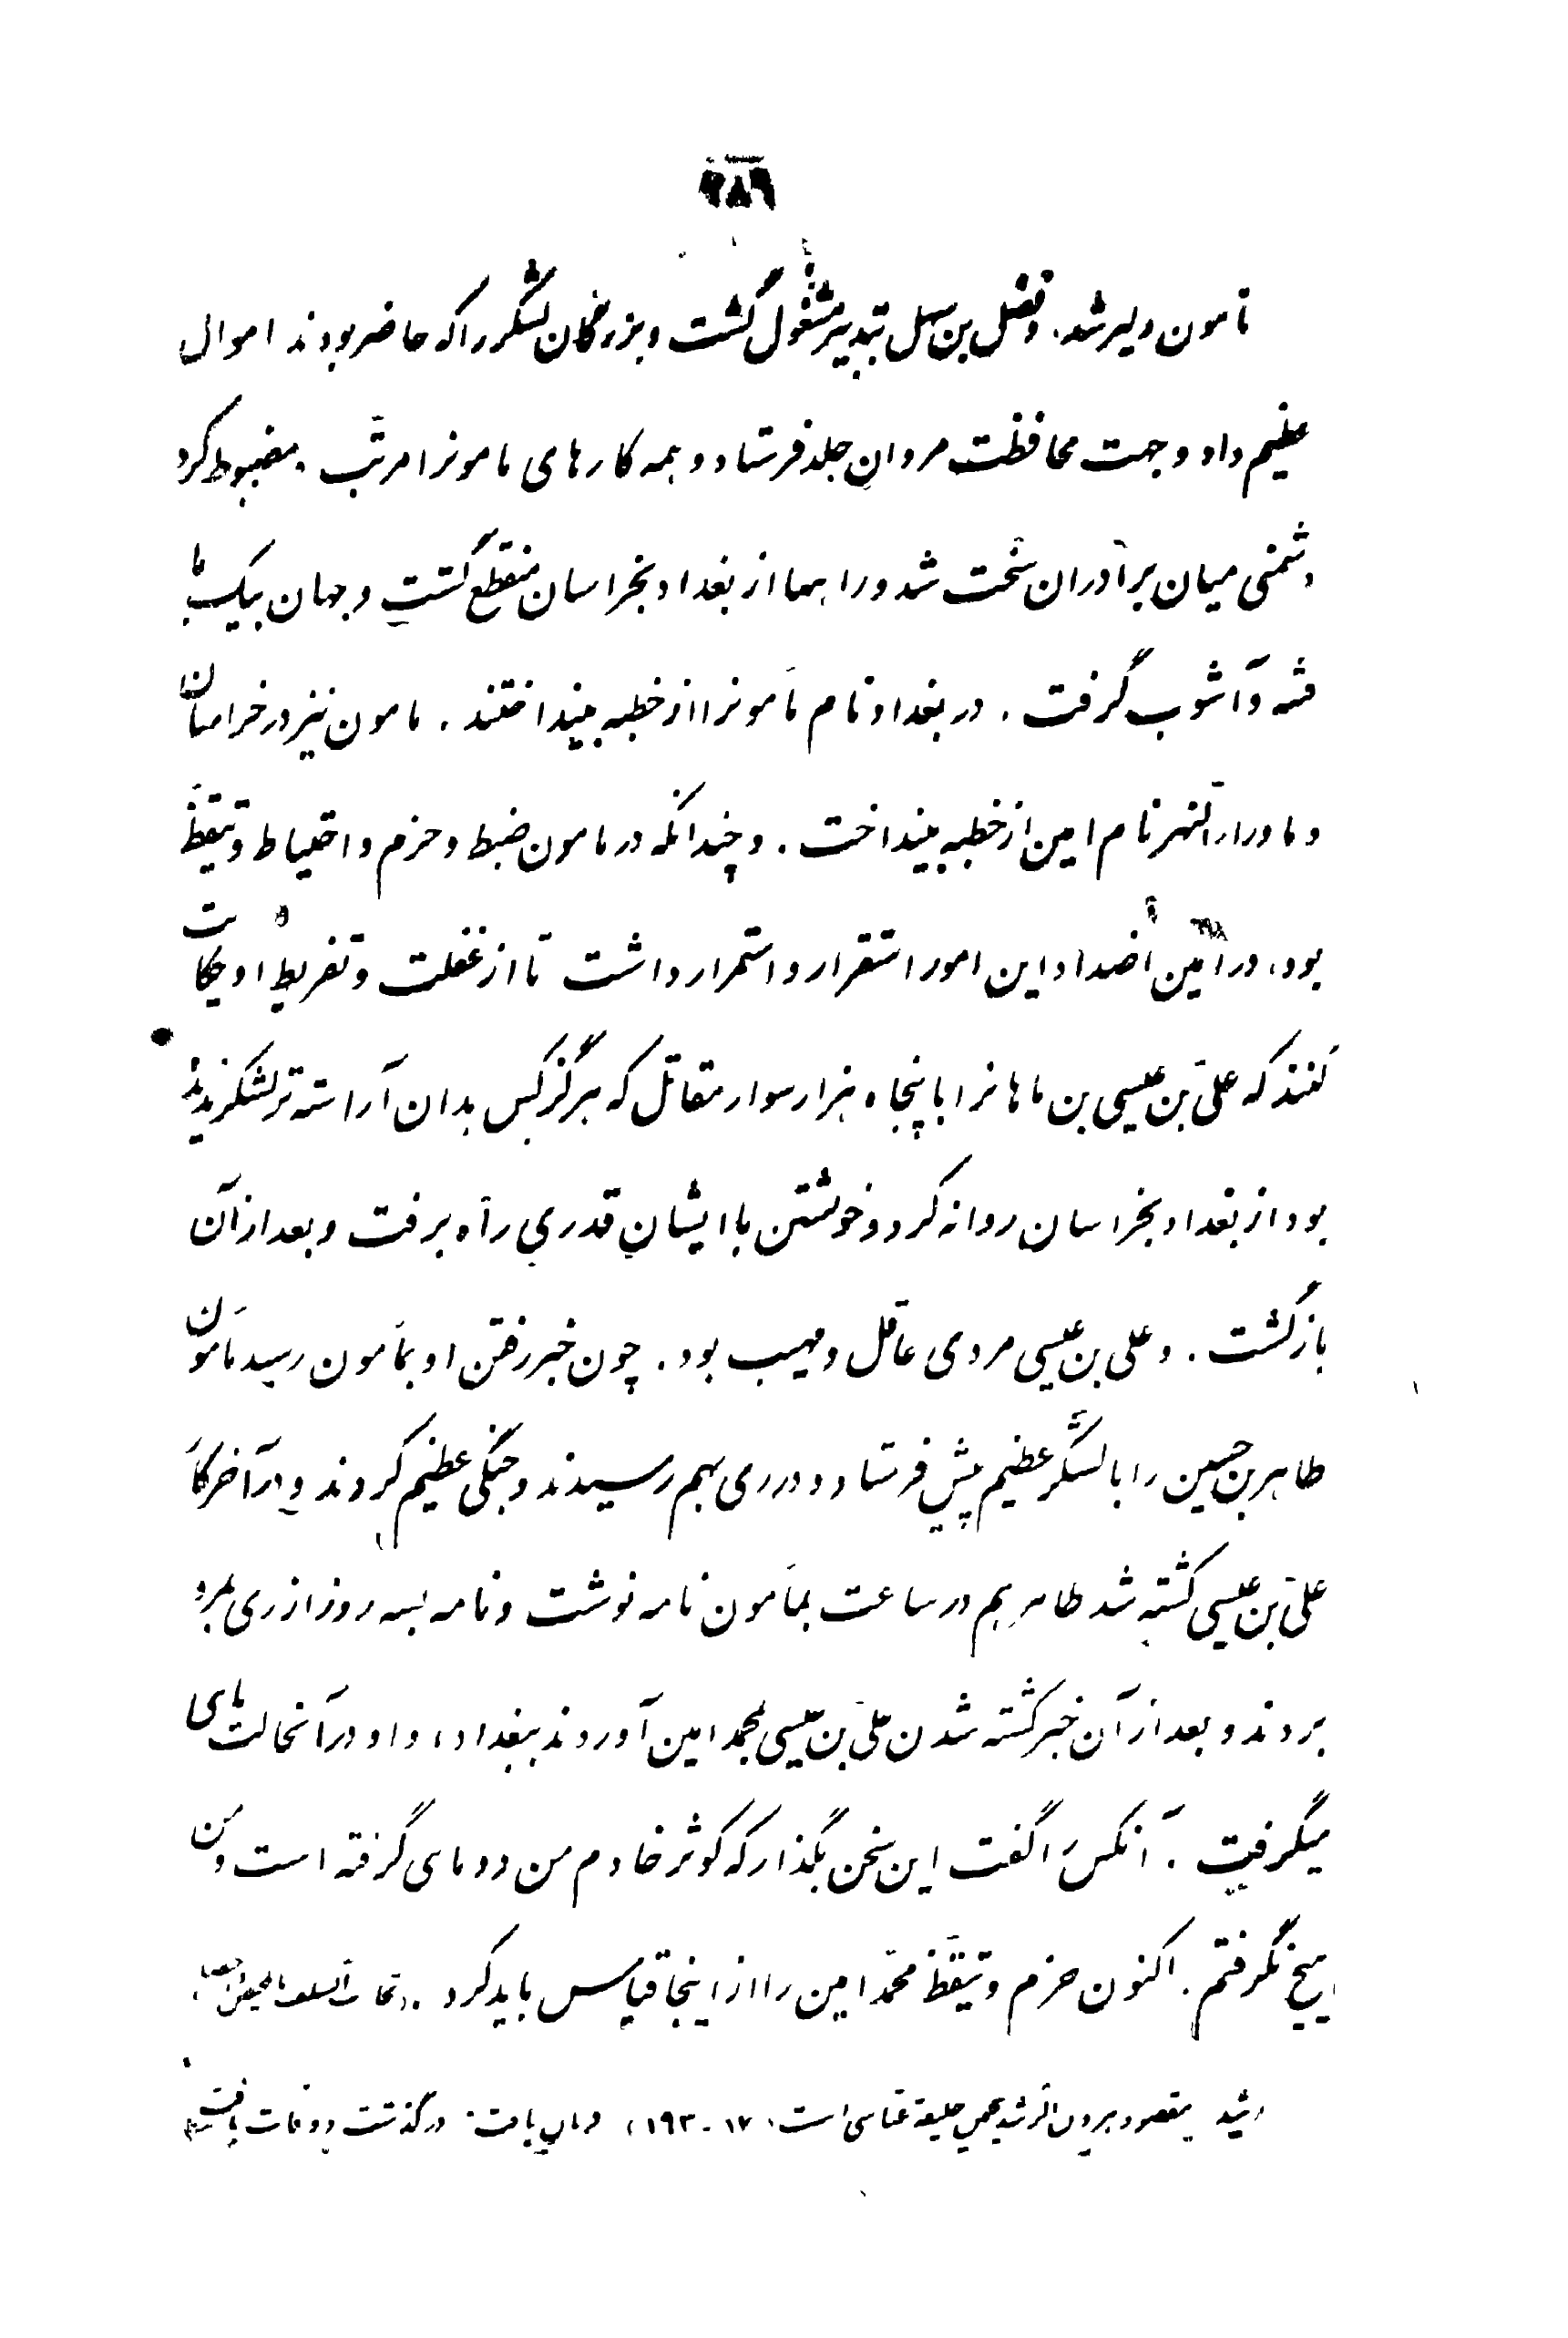 ۲۸۹
مأمون دلیر شد. و فضل بن سهل بتدبیر مشغول گشت و بزرگان لشگر را که حاضر بودند اموال
عظیم داد و جهت محافظت مردان جلد فرستاد و همه کارهای مامونرا مرتب و مضبوط کرد
دشمنی میان برادران سخت شد و راهها از بغداد بخراسان منقطع گشت و جهان بیکبار
فتنه و آشوب گرفت. در بغداد نام مأمونرا از خطبه بینداختند. مامون نیز در خراسان
و ماوراءالنهر نام امین از خطبه بینداخت. و چندانکه در مامون ضبط و حزم و احتیاط و تیقظ
بود، در امین اضداد این امور استقرار و استمرار داشت تا از غفلت و تفریط او حکایت
کنند که علی بن عیسی بن ماهانرا با پنجاه هزار سوار مقاتل که هرگز کس بدان آراسته تر لشکر ندیده
بود از بغداد بخراسان روانه کرد و خویشتن با ایشان قدری راه برفت و بعد از آن
بازگشت. و علی بن عیسی مردی عاقل و مهیب بود. چون خبر رفتن او بمأمون رسید مأمون
طاهر بن حسین را با لشگر عظیم پیش فرستاد و در ری بهم رسیدند و جنگی عظیم کردند و در آخر کار
علی بن عیسی کشته شد طاهر هم در ساعت بمأمون نامه نوشت و نامه بسه روز از ری بمرو
بردند و بعد از آن خبر کشته شدن علی بن عیسی بمحمد امین آوردند ببغداد، و او در آنحالت ماهی
میگرفت. آنکس را گفت این سخن بگذار که کوثر خادم من دو ماهی گرفته است و من
هیچ نگرفتم. اکنون حزم و تیقظ محمد امین را از اینجا قیاس باید کرد.
رشید مقصود هرون الرشید پنجمین خلیفه عباسی است (۱۷۰ - ۱۹۳) فرمان یافت: درگذشت و وفات یافت